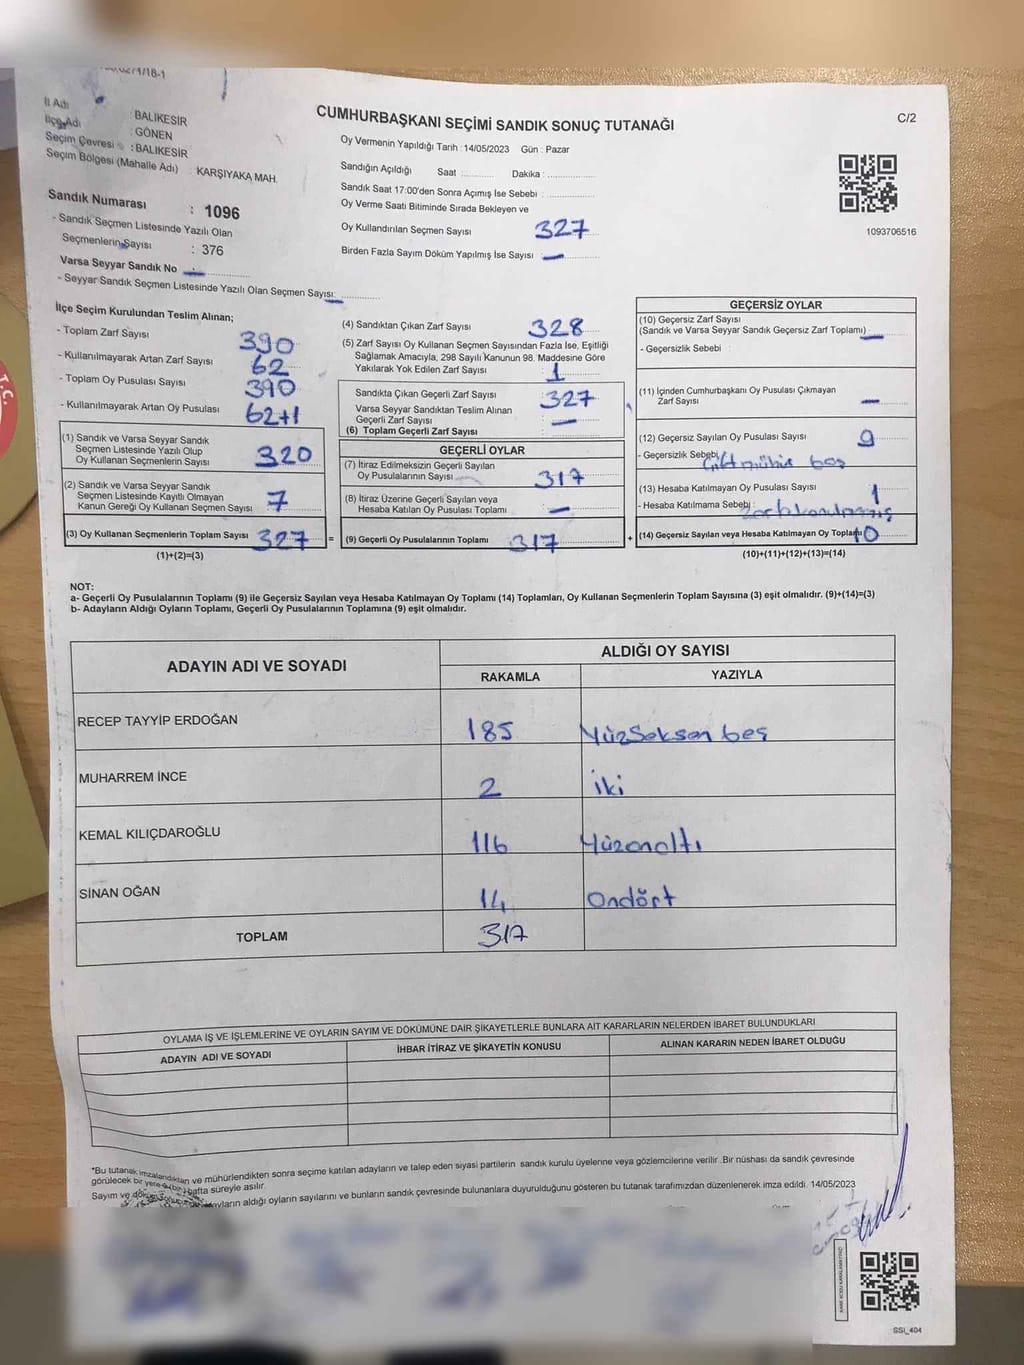 İl Adı : BALIKESİR
İlçe Adı : GÖNEN
Seçim Çevresi : BALIKESİR
Seçim Bölgesi (Mahalle Adı) : KARŞIYAKA MAH.
Sandık Numarası : 1096
- Sandık Seçmen Listesinde Yazılı Olan
Seçmenlerin Sayısı : 376
Varsa Seyyar Sandık No : —
- Seyyar Sandık Seçmen Listesinde Yazılı Olan Seçmen Sayısı: —
CUMHURBAŞKANI SEÇİMİ SANDIK SONUÇ TUTANAĞI
C/2
Oy Vermenin Yapıldığı Tarih : 14/05/2023 Gün : Pazar
Sandığın Açıldığı Saat :........... Dakika :..............
Sandık Saat 17:00'den Sonra Açımış İse Sebebi :..............
Oy Verme Saati Bitiminde Sırada Bekleyen ve
Oy Kullandırılan Seçmen Sayısı 327
Birden Fazla Sayım Döküm Yapılmış İse Sayısı : —
1093706516
İlçe Seçim Kurulundan Teslim Alınan;
- Toplam Zarf Sayısı 390
- Kullanılmayarak Artan Zarf Sayısı 62
- Toplam Oy Pusulası Sayısı 390
- Kullanılmayarak Artan Oy Pusulası 62+1
(1) Sandık ve Varsa Seyyar Sandık
Seçmen Listesinde Yazılı Olup
Oy Kullanan Seçmenlerin Sayısı 320
(2) Sandık ve Varsa Seyyar Sandık
Seçmen Listesinde Kayıtlı Olmayan
Kanun Gereği Oy Kullanan Seçmen Sayısı 7
(3) Oy Kullanan Seçmenlerin Toplam Sayısı 327 =
(1)+(2)=(3)
(4) Sandıktan Çıkan Zarf Sayısı 328
(5) Zarf Sayısı Oy Kullanan Seçmen Sayısından Fazla İse, Eşitliği
Sağlamak Amacıyla, 298 Sayılı Kanunun 98. Maddesine Göre
Yakılarak Yok Edilen Zarf Sayısı : 1
Sandıkta Çıkan Geçerli Zarf Sayısı : 327
Varsa Seyyar Sandıktan Teslim Alınan
Geçerli Zarf Sayısı : —
(6) Toplam Geçerli Zarf Sayısı
GEÇERLİ OYLAR
(7) İtiraz Edilmeksizin Geçerli Sayılan
Oy Pusulalarının Sayısı 317
(8) İtiraz Üzerine Geçerli Sayılan veya
Hesaba Katılan Oy Pusulası Toplamı —
(9) Geçerli Oy Pusulalarının Toplamı 317 +
GEÇERSİZ OYLAR
(10) Geçersiz Zarf Sayısı
(Sandık ve Varsa Seyyar Sandık Geçersiz Zarf Toplamı) —
- Geçersizlik Sebebi :
(11) İçinden Cumhurbaşkanı Oy Pusulası Çıkmayan
Zarf Sayısı —
(12) Geçersiz Sayılan Oy Pusulası Sayısı 9
- Geçersizlik Sebebi: Çift mühür boş
(13) Hesaba Katılmayan Oy Pusulası Sayısı 1
- Hesaba Katılmama Sebebi :
(14) Geçersiz Sayılan veya Hesaba Katılmayan Oy Toplamı 10
(10)+(11)+(12)+(13)=(14)
NOT:
a- Geçerli Oy Pusulalarının Toplamı (9) ile Geçersiz Sayılan veya Hesaba Katılmayan Oy Toplamı (14) Toplamları, Oy Kullanan Seçmenlerin Toplam Sayısına (3) eşit olmalıdır. (9)+(14)=(3)
b- Adayların Aldığı Oyların Toplamı, Geçerli Oy Pusulalarının Toplamına (9) eşit olmalıdır.
ADAYIN ADI VE SOYADI ALDIĞI OY SAYISI
RAKAMLA YAZIYLA
RECEP TAYYİP ERDOĞAN 185 Yüzseksen beş
MUHARREM İNCE 2 iki
KEMAL KILIÇDAROĞLU 116 Yüzonaltı
SİNAN OĞAN 14 Ondört
TOPLAM 317
OYLAMA İŞ VE İŞLEMLERİNE VE OYLARIN SAYIM VE DÖKÜMÜNE DAİR ŞİKAYETLERLE BUNLARA AİT KARARLARIN NELERDEN İBARET BULUNDUKLARI
ADAYIN ADI VE SOYADI İHBAR İTİRAZ VE ŞİKAYETİN KONUSU ALINAN KARARIN NEDEN İBARET OLDUĞU
*Bu tutanak imzalandıktan ve mühürlendikten sonra seçime katılan adayların ve talep eden siyasi partilerin sandık kurulu üyelerine veya gözlemcilerine verilir .Bir nüshası da sandık çevresinde
görülecek bir yere (bir) hafta süreyle asılır.
Sayım ve döküm adayların aldığı oyların sayılarını ve bunların sandık çevresinde bulunanlara duyurulduğunu gösteren bu tutanak tarafımızdan düzenlenerek imza edildi. 14/05/2023
SSİ_404
T.C.